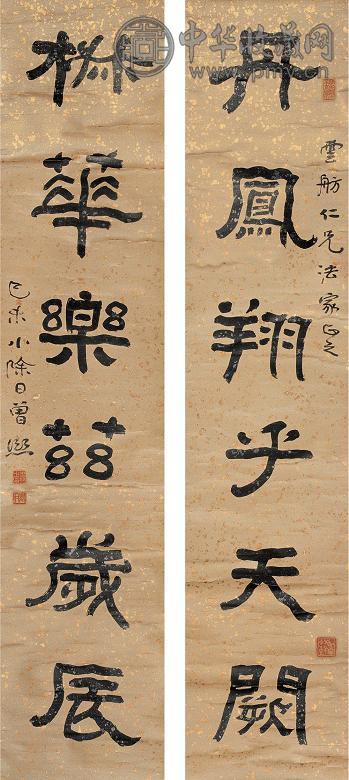 中华收藏网
丹鳳翔乎天闕
雲舫仁兄法家正之
華樂茲歲辰
己未小除日曾熙